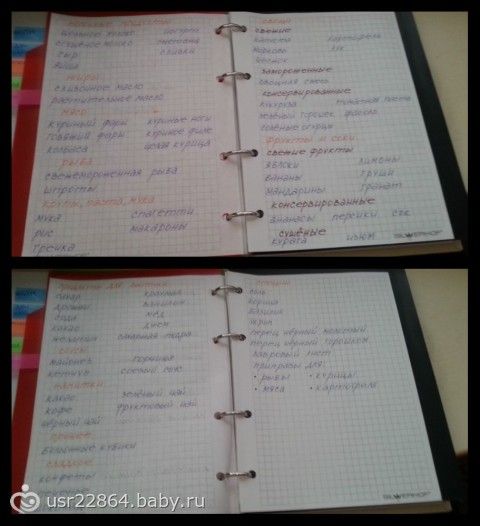 молочные продукты
цельное молоко йогурт
сгущёное молоко сметана
сыр сливки
яйца
жиры
сливочное масло
растительное масло
мясо
куриный фарш куриные ноги
говяжий фарш куриное филе
колбаса целая курица
рыба
свежемороженная рыба
шпроты
крупы, паста, мука
мука спагетти
рис макароны
гречка
овощи
свежие
капуста картофель
морковь лук
чеснок
замороженные
овощная смесь
консервированные
кукуруза томатная паста
зелёный горошек фасоль
солёные огурцы
фрукты и соки
свежие фрукты
яблоки лимоны
бананы груши
мандарины гранат
консервированные
ананасы персики сок
сушёные
курага изюм
SILWERHOF
продукты для выпечки
сахар крахмал
дрожжи ванилин
сода мёд
какао джем
желатин сахарная пудра
соусы
майонез горчица
кетчуп соевый соус
напитки
какао зелёный чай
кофе фруктовый чай
чёрный чай
прочее
бульонные кубики
сладкое
конфеты
печенье
специи
соль
корица
базилик
укроп
перец чёрный молотый
перец чёрный горошком
лавровый лист
приправы для:
• рыбы • курицы
• мяса • картофеля
SILWERHOF
usr22864.baby.ru